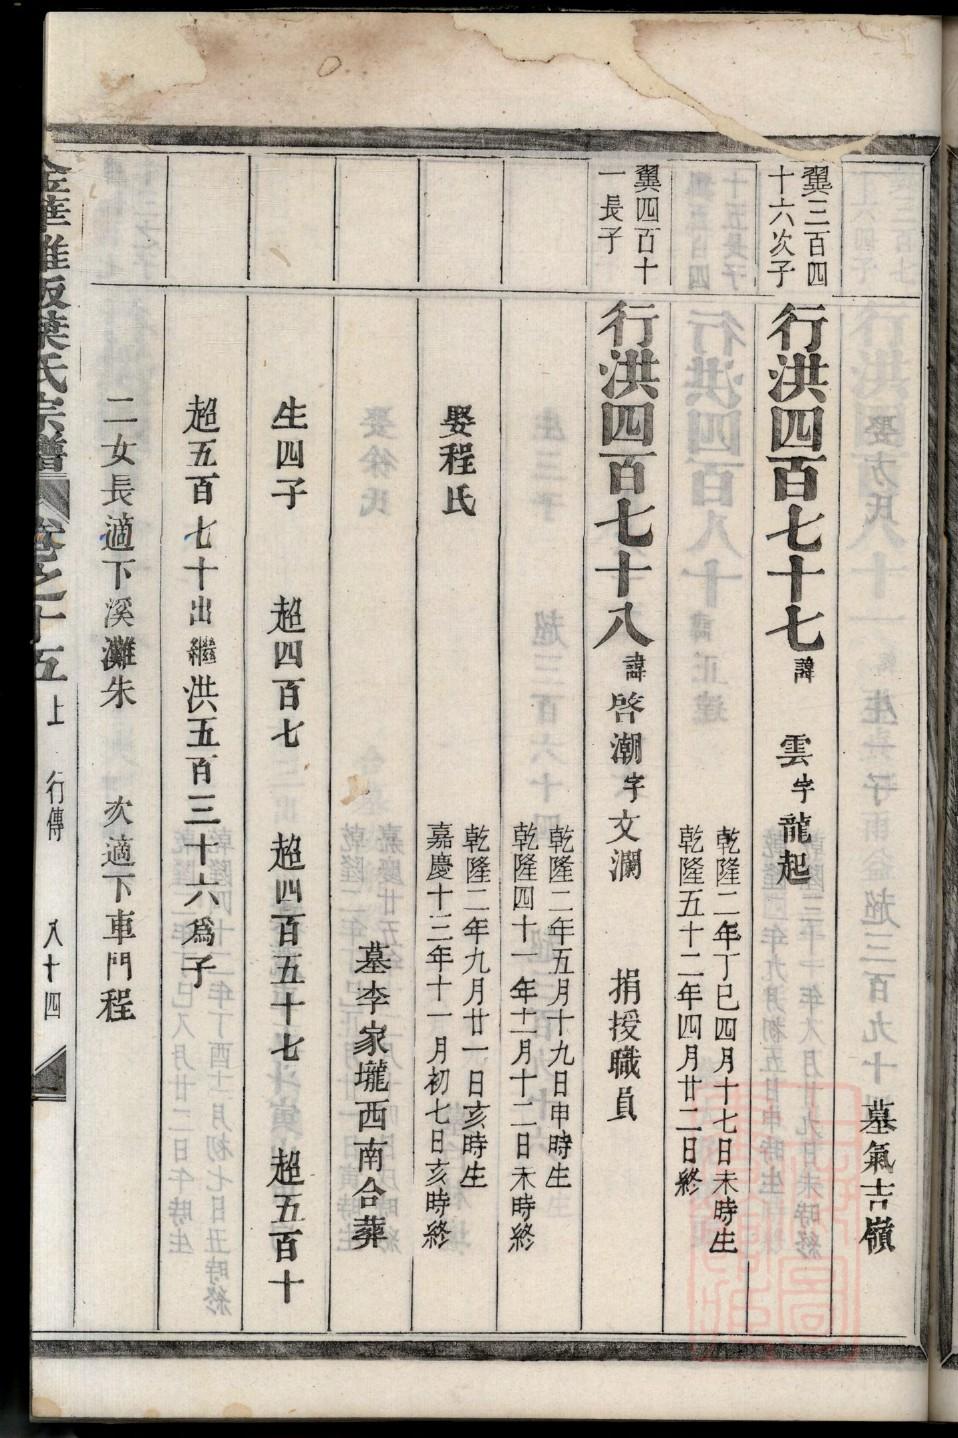 墓氣吉嶺
翼三百四
十六次子
行洪四百七十七 諱 雲 字 龍起
乾隆二年丁巳四月十七日未時生
乾隆五十二年四月廿二日終
翼四百十
一長子
行洪四百七十八 諱 啓潮 字 文瀾 捐授職員
乾隆二年五月十九日申時生
乾隆四十一年十二月十二日未時終
娶程氏
乾隆二年九月廿一日亥時生
嘉慶十三年十一月初七日亥時終
墓李家壠西南合葬
生四子 超四百七 超四百五十七 超五百十
超五百七十出繼洪五百三十六爲子
二女長適下溪灘朱 次適下車門程
葉氏宗譜 卷之十五 上 行傳 八十四